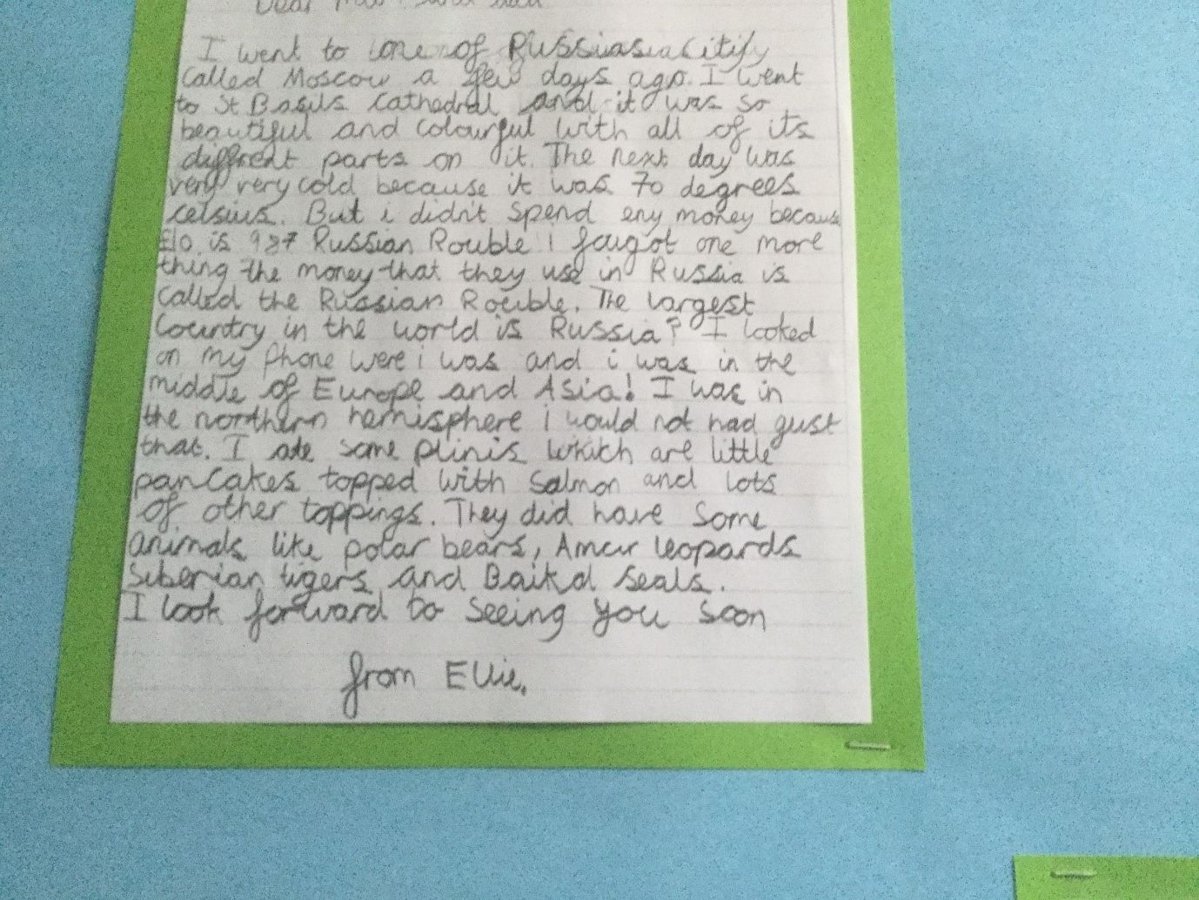 Dear
I went to one of Russias Citify
called Moscow a few days ago. I went
to St Basils Cathedral and it was so
beautiful and colourful with all of its
different parts on it. The next day was
very very cold because it was 70 degrees
celsius. But i didn't spend eny money because
£10 is 987 Russian Rouble i faugot one more
thing the money that they use in Russia is
called the Russian Rouble. The largest
Country in the world is Russia? I looked
on my phone were i was and i was in the
middle of Europe and Asia! I was in
the northern hemisphere i would not had gust
that. I ate some plinis which are little
pancakes topped with Salmon and lots
of other toppings. They did have some
animals like polar bears, Amur leopards
Siberian tigers and Baikal Seals.
I look forward to seeing you soon
from Ellie.